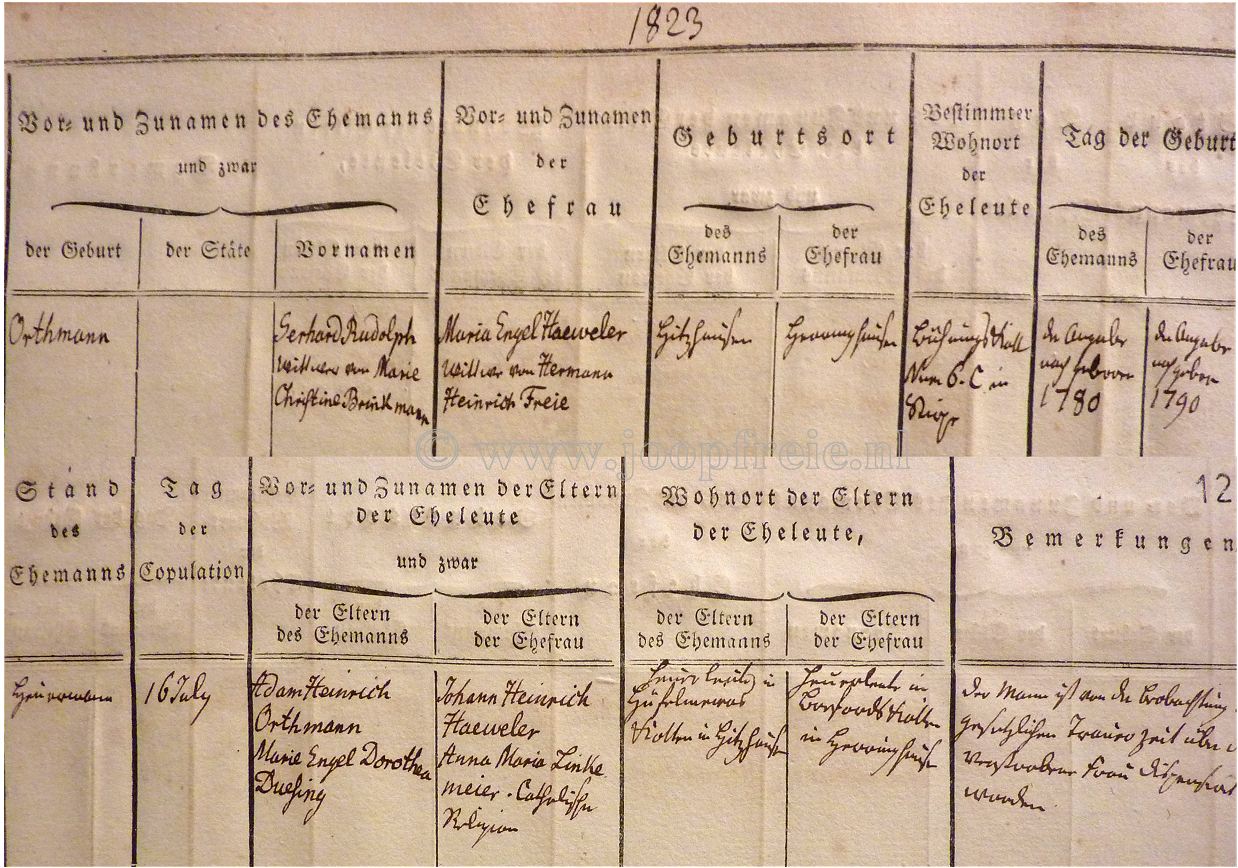 1823
Vor- und Zunamen des Ehemanns
und zwar
der Geburt
der Stäte
Vornamen
Vor- und Zunamen
der
Ehefrau
Geburtsort
des
Ehemanns
der
Ehefrau
Bestimmter
Wohnort
der
Eheleute
Tag der Geburt
des
Ehemanns
der
Ehefrau
Orthmann
Gerhard Rudolph
Wittwer von Marie
Christine Brinkmann
Maria Engel Haeweler
Wittwe von Hermann
Heinrich Freie
Hitzhausen
Herringhausen
Num 6. C in
der Angabe
nach geboren
1780
der Angabe
nach geboren
1790
© www.joopfreie.nl
Stand
des
Ehemanns
Tag
der
Copulation
Vor- und Zunamen der Eltern
der Eheleute
und zwar
der Eltern
des Ehemanns
der Eltern
der Ehefrau
Wohnort der Eltern
der Eheleute,
der Eltern
des Ehemanns
der Eltern
der Ehefrau
12
Bemerkungen
Heuermann
16 July
Adam Heinrich
Orthmann
Marie Engel Dorothea
Duesing
Johann Heinrich
Haeweler
Anna Maria Linke
meier. Catholische
Religion
Heuerleute in
Kotten in Hitzhausen
Heuerleute in
in Herringhausen
Der Mann ist von der Beobachtung
gesetzlichen Trauerzeit über
verstorbene Frau dispensirt
worden